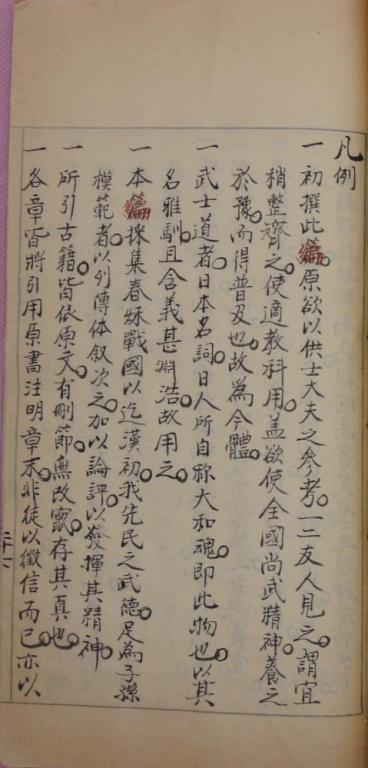 凡例
一 初撰此編。原欲以供士大夫之參考。一二友人見之。謂宜
稍整齊之。使適教科用。蓋欲使全國尚武精神。養之
於豫。而得普及也。故為今體。
一 武士道者。日本名詞。日人所自称大和魂。即此物也。以其
名雅馴。且含義甚淵浩。故用之。
一 本編採集春秋戰國以迄漢初。我先民之武德。足為子孫
模範者。以列傳体叙次之。加以論評。以發揮其精神。
一 所引古籍。皆依原文。有刪節。無改竄。存其真也。
一 各章皆將引用原書注明章末。非徒以徵信而已。亦以